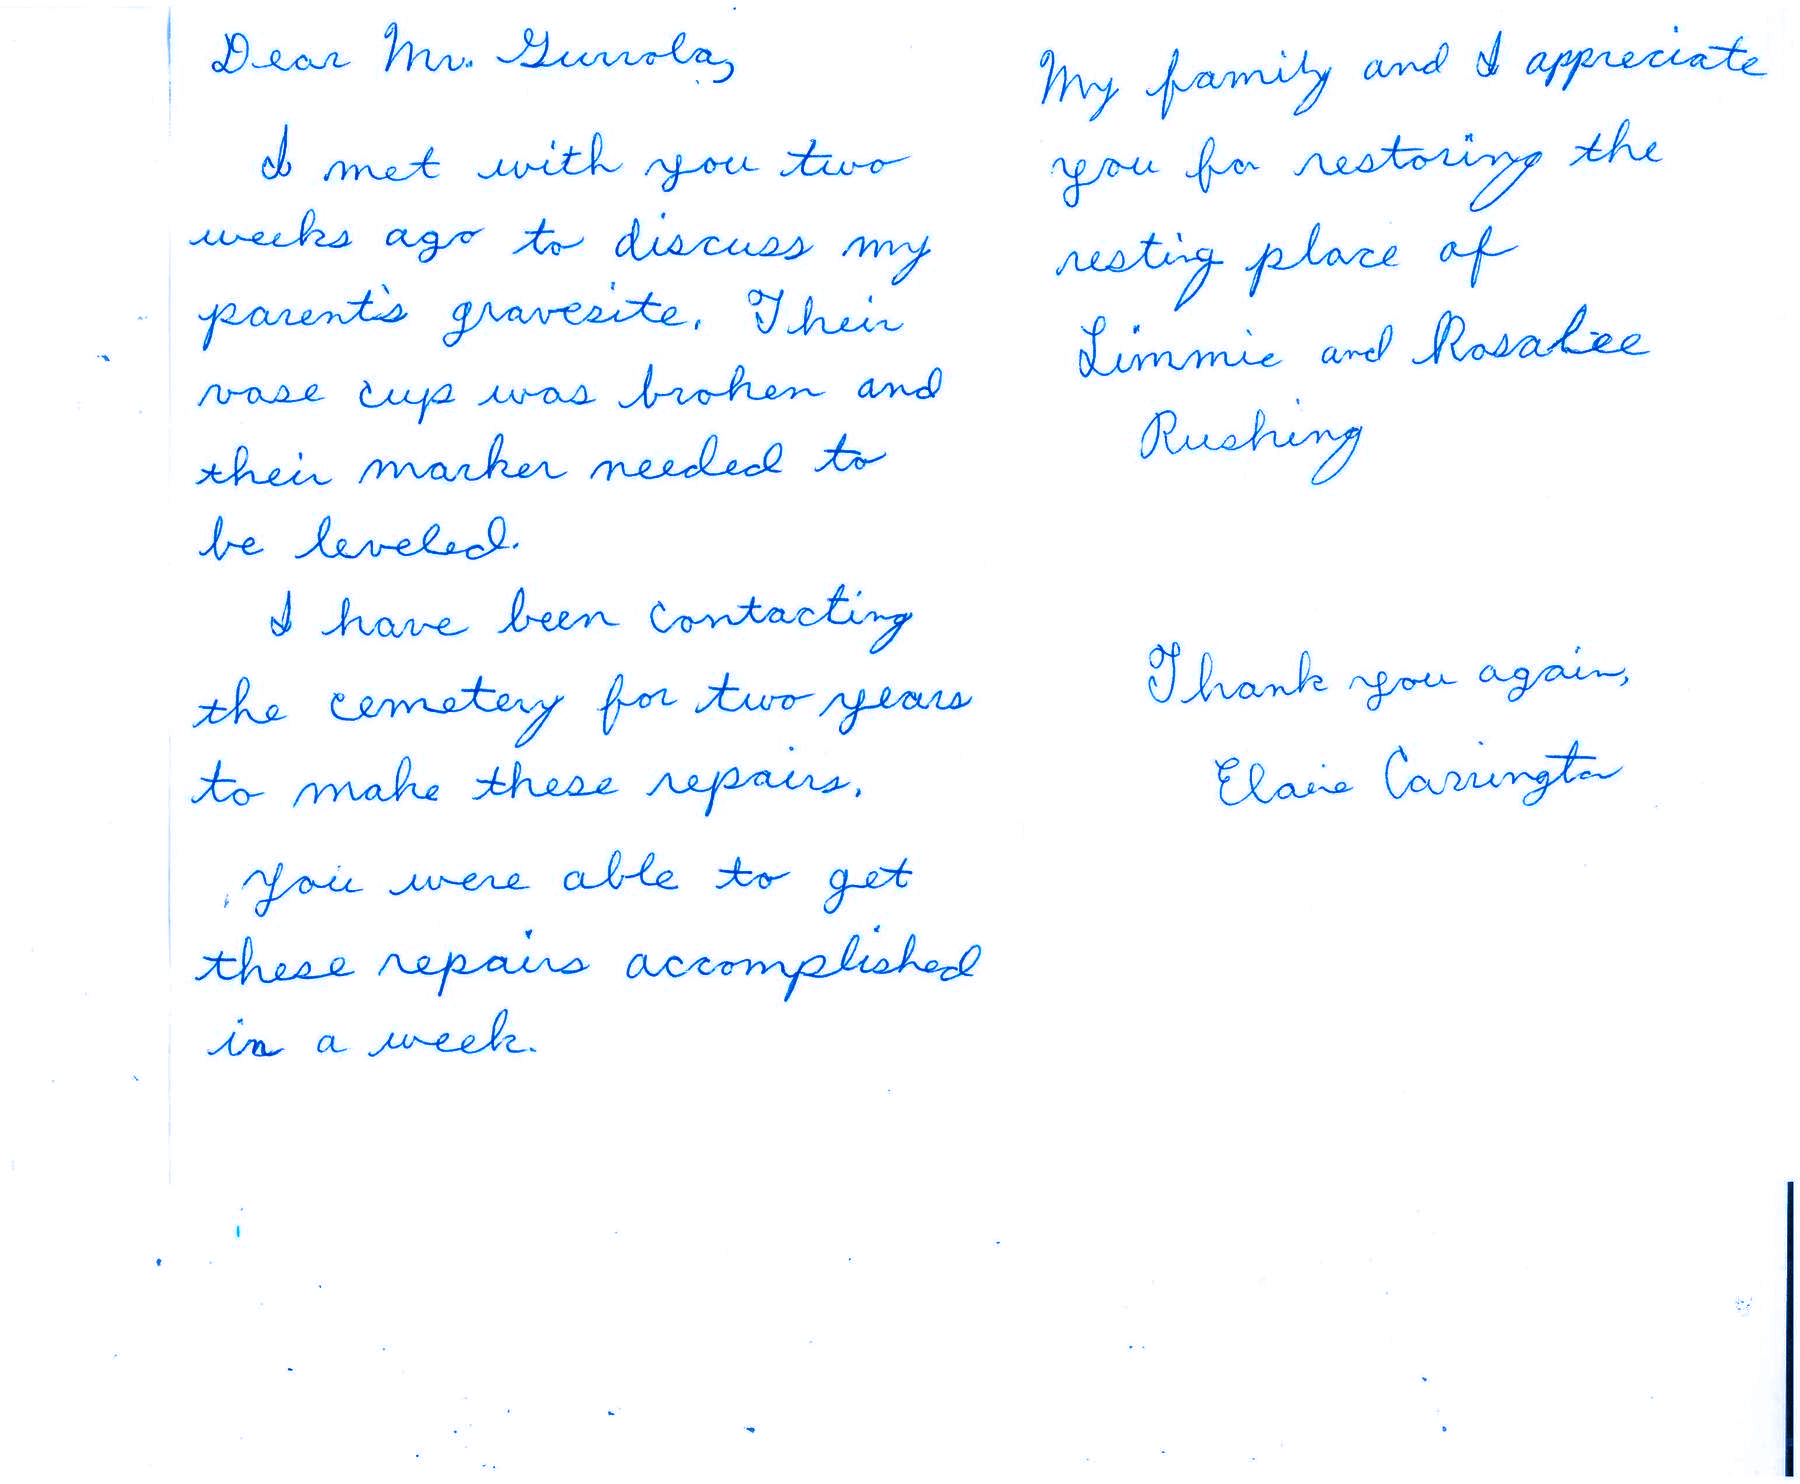 Dear Mr. Gurrola,
I met with you two
weeks ago to discuss my
parent's gravesite. Their
vase cup was broken and
their marker needed to
be leveled.
I have been contacting
the cemetery for two years
to make these repairs.
You were able to get
these repairs accomplished
in a week.
My family and I appreciate
you for restoring the
resting place of
Limmie and Rosalee
Rushing
Thank you again,
Elaine Carrington